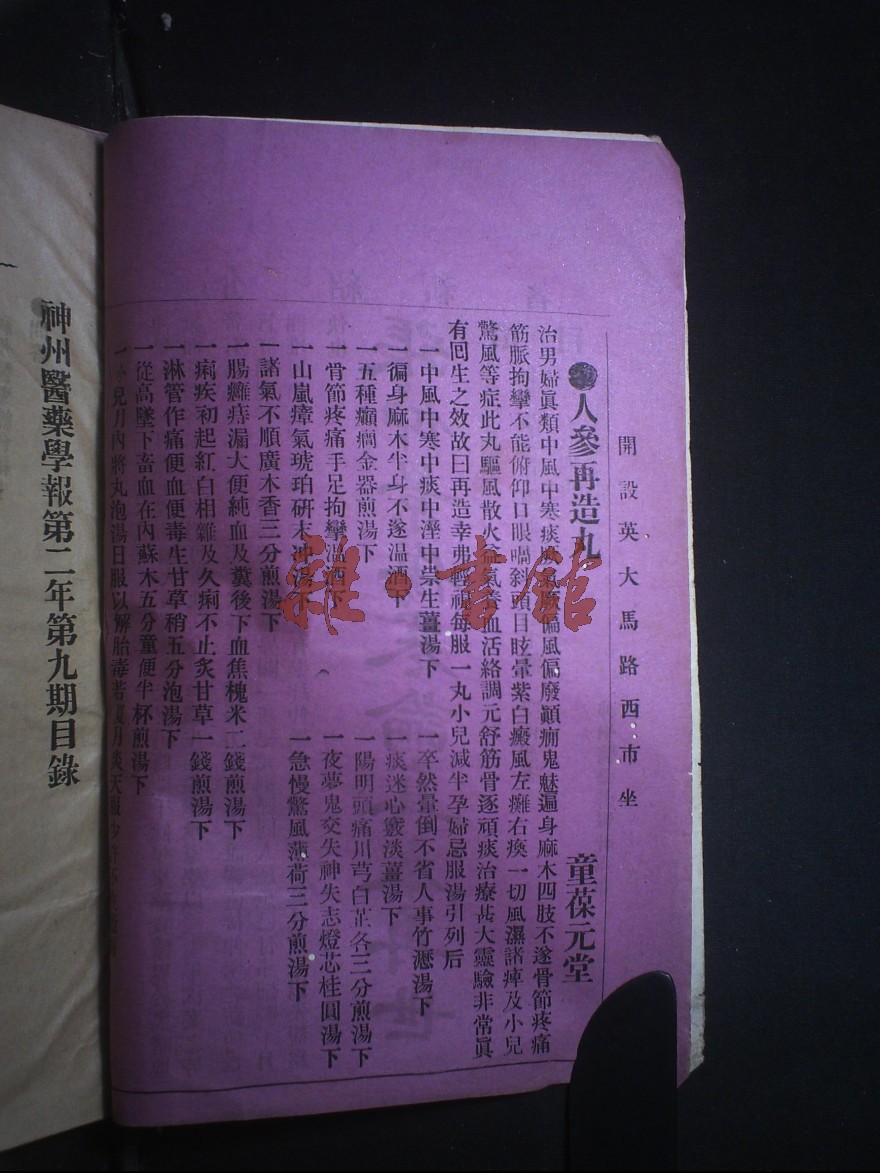 開設英大馬路西市坐
人參再造丸 童葆元堂
治男婦眞類中風中寒痰 偏風偏廢顚癎鬼魅遍身麻木四肢不遂骨節疼痛
筋脈拘攣不能俯仰口眼喎斜頭目眩暈紫白癜風左癱右瘓一切風濕諸痺及小兒
驚風等症此丸驅風散火益氣養血活絡調元舒筋骨逐頑痰治療甚大靈驗非常眞
有囘生之效故曰再造幸弗輕視每服一丸小兒減半孕婦忌服湯引列后
一中風中寒中痰中溼中祟生薑湯下 一卒然暈倒不省人事竹瀝湯下
一徧身麻木半身不遂温酒下 一痰迷心竅淡薑湯下
一五種癲癎金器煎湯下 一陽明頭痛川芎白芷各三分煎湯下
一骨節疼痛手足拘攣温酒下 一夜夢鬼交失神失志燈芯桂圓湯下
一山嵐瘴氣琥珀硏末冲湯下 一急慢驚風薄荷三分煎湯下
一諸氣不順廣木香三分煎湯下
一腸癰痔漏大便純血及糞後下血焦槐米二錢煎湯下
一痢疾初起紅白相雜及久痢不止炙甘草一錢煎湯下
一淋管作痛便血便毒生甘草稍五分泡湯下
一從高墜下畜血在內蘇木五分童便半杯煎湯下
兒月內將丸泡湯日服以解胎毒若
神州醫藥學報第二年第九期目錄
雜·書館